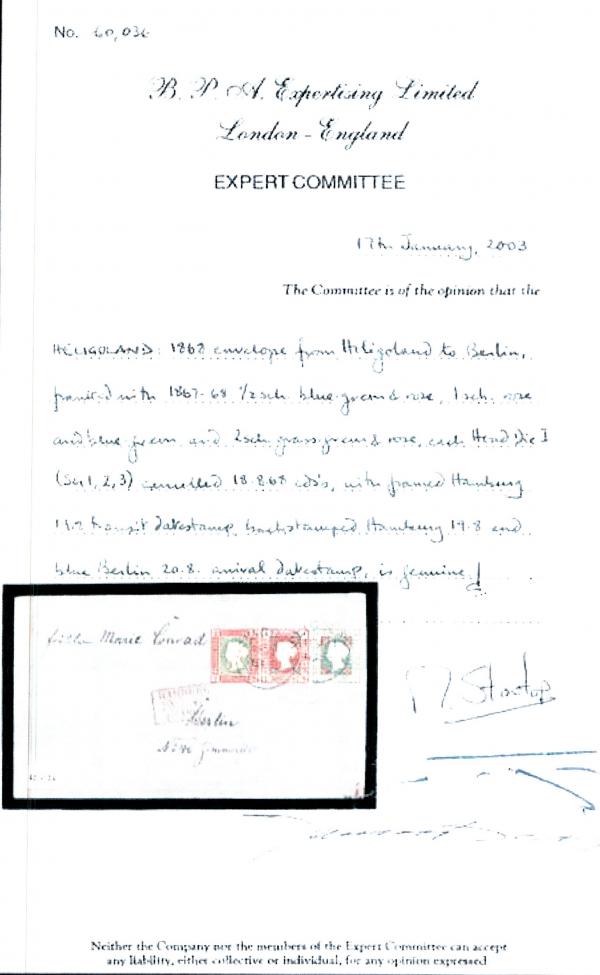 No. 60,036
B. P. A. Expertising Limited
London - England
EXPERT COMMITTEE
17th January, 2003
The Committee is of the opinion that the
HELIGOLAND: 1868 envelope from Heligoland to Berlin,
franked with 1867-68 1/2sch. blue-green & rose, 1 sch. rose
and blue green and 2sch grass-green & rose, each Head Die I
(SG 1, 2, 3) cancelled 18.8.68 cds's, with framed Hamburg
19.8 transit datestamp, backstamped Hamburg 19.8 and
blue Berlin 20.8. arrival datestamp, is genuine.
Marie Conrad
HAMBURG
Berlin
Neither the Company nor the members of the Expert Committee can accept
any liability, either collective or individual, for any opinion expressed